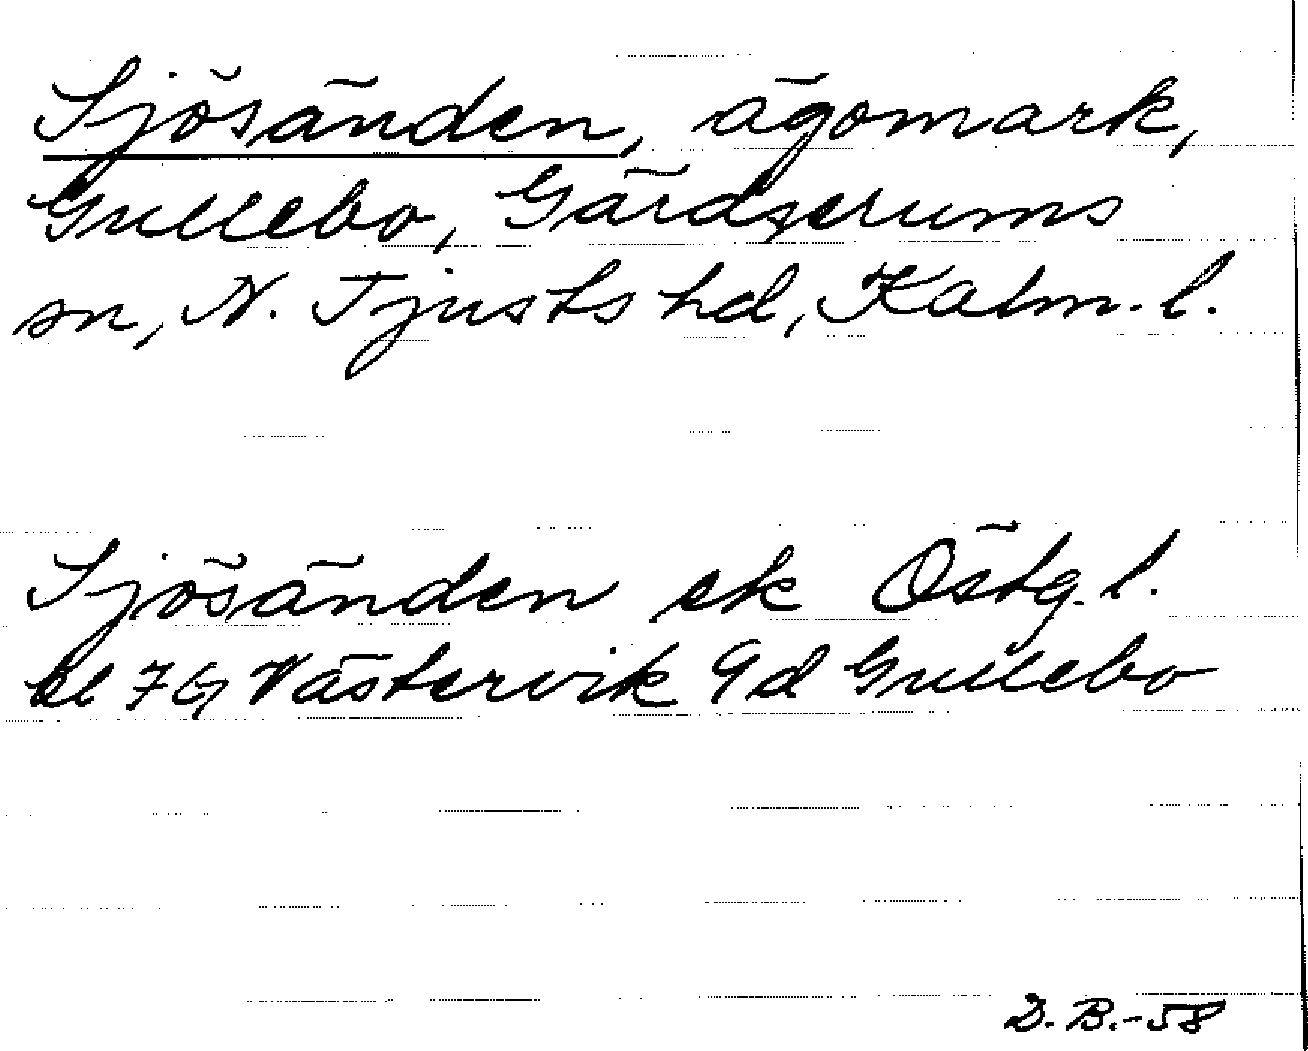 Sjösänden, ägomark,
Gullebo, Gärdserums
sn, N. Tjusts hd, Kalm. l.
Sjösänden ek Östg. l.
bl 7 G, Västervik 9d Gullebo
D. B.-58